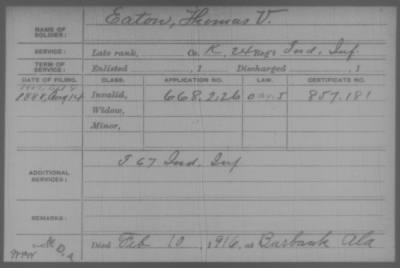 Eaton, Thomas V.
NAME OF SOLDIER:
SERVICE: Late rank, Co. K, 24 Reg't Ind. Inf.
TERM OF SERVICE: Enlisted , 1 Discharged , 1
DATE OF FILING. CLASS. APPLICATION NO. LAW. CERTIFICATE NO.
1888, Aug 14 Invalid, 668,226 857,181
Widow,
Minor,
ADDITIONAL SERVICES: F 67 Ind. Inf
REMARKS:
Died Feb 10, 1916, at Burbank Ala